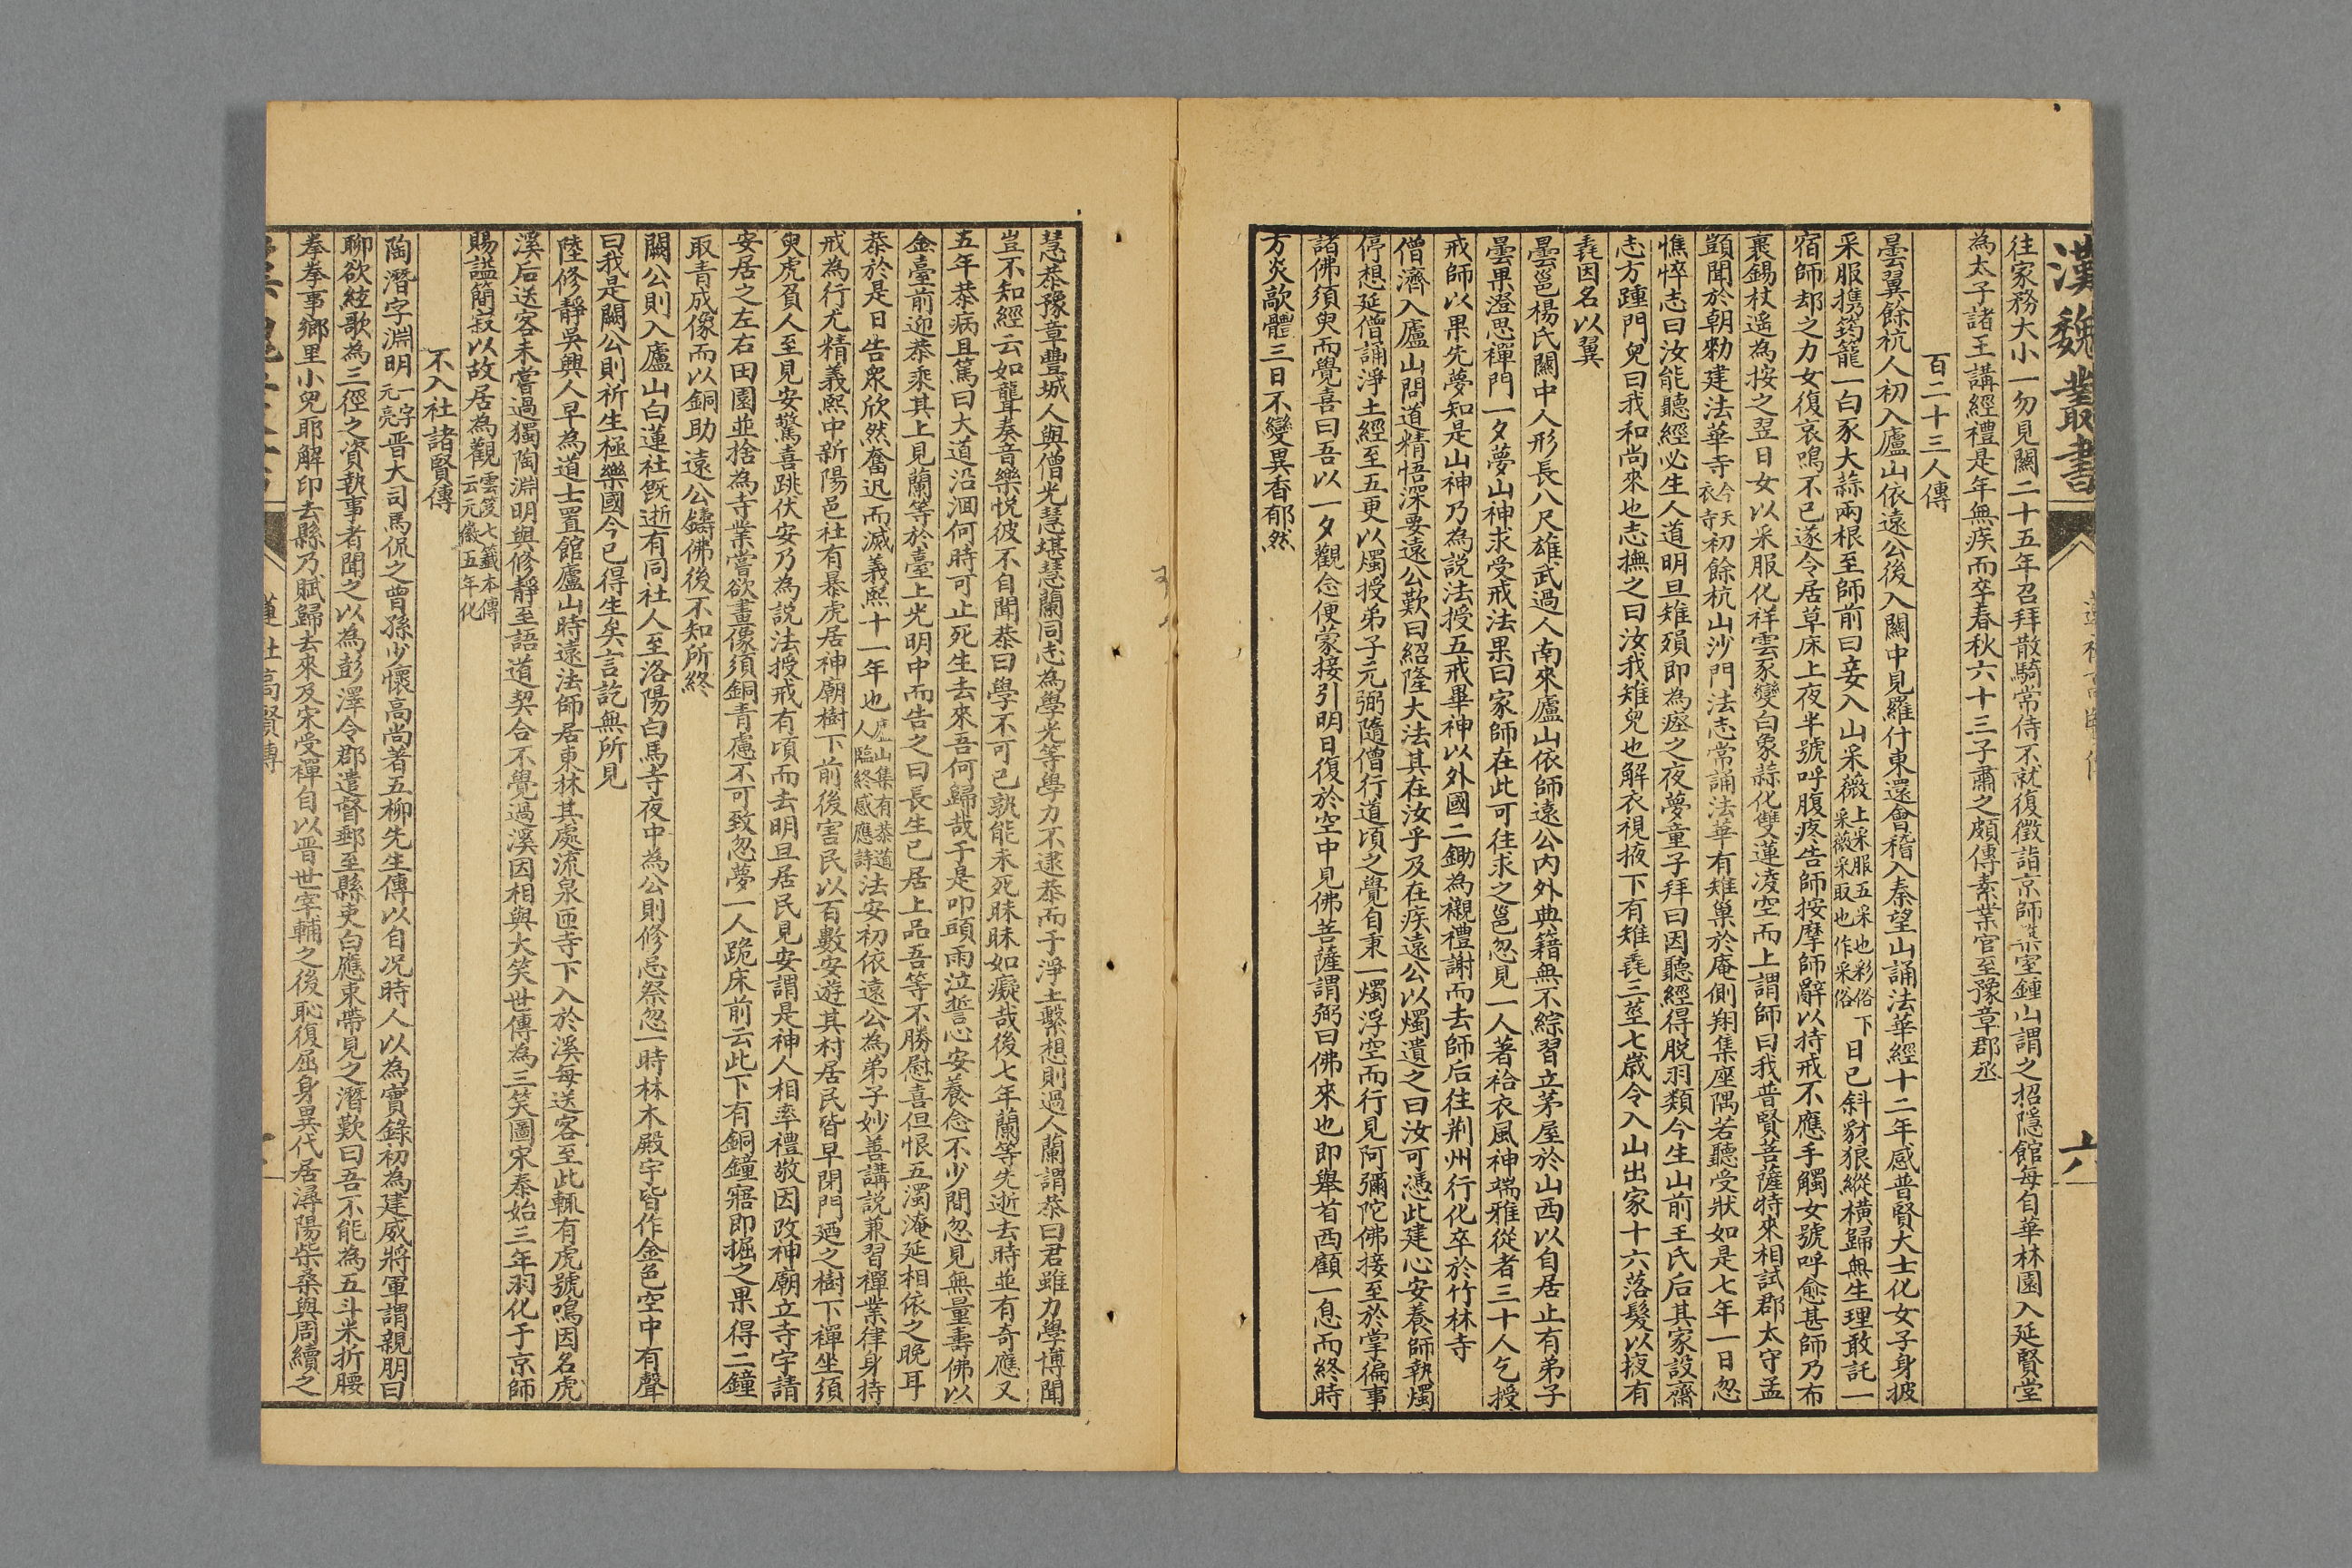 漢魏叢書
六
往家務大小一勿見關二十五年召拜散騎常侍不就復徵詣京師築室鍾山謂之招隱館每自華林園入延賢堂
為太子諸王講經禮是年無疾而卒春秋六十三子肅之頗傳素業官至豫章郡丞
百二十三人傳
曇翼餘杭人初入廬山依遠公後入關中見羅什東還會稽入秦望山誦法華經十二年感普賢大士化女子身披
采服攜筠籠一白豕大蒜兩根至師前曰妾入山采薇上采服五采也彩俗下采薇采取也作采俗日已斜豺狼縱橫歸無生理敢託一
宿師却之力女復哀鳴不已遂令居草床上夜半號呼腹疼告師按摩師辭以持戒不應手觸女號呼愈甚師乃布
裹錫杖遙為按之翌日女以采服化祥雲豕變白象蒜化雙蓮凌空而上謂師曰我普賢菩薩特來相試郡太守孟
顗聞於朝勑建法華寺今天衣寺初餘杭山沙門法志常誦法華有雉巢於庵側翔集座隅若聽受狀如是七年一日忽
憔悴志曰汝能聽經必生人道明旦雉殞即為瘞之夜夢童子拜曰因聽經得脱羽類今生山前王氏后其家設齋
志方踵門兒曰我和尚來也志撫之曰汝我雉兒也解衣視掖下有雉毳三莖七歲令入山出家十六落髮以掖有
毳因名以翼
曇邕楊氏關中人形長八尺雄武過人南來廬山依師遠公内外典籍無不綜習立茅屋於山西以自居止有弟子
曇果澄思禪門一夕夢山神求受戒法果曰家師在此可往求之邕忽見一人著袷衣風神端雅從者三十人乞授
戒師以果先夢知是山神乃為説法授五戒畢神以外國二鋤為襯禮謝而去師后往荆州行化卒於竹林寺
僧濟入廬山問道精悟深要遠公歎曰紹隆大法其在汝乎及在疾遠公以燭遺之曰汝可憑此建心安養師執燭
停想延僧誦淨土經至五更以燭授弟子元弼隨僧行道頃之覺自秉一燭浮空而行見阿彌陀佛接至於掌徧事
諸佛須臾而覺喜曰吾以一夕觀念便蒙接引明日復於空中見佛菩薩謂弼曰佛來也即舉首西顧一息而終時
方炎歊體三日不變異香郁然
慧恭豫章豐城人與僧光慧堪慧蘭同志為學光等學力不逮恭而于淨土繫想則過人蘭謂恭曰君雖力學博聞
豈不知經云如聾奏音樂悦彼不自聞恭曰學不可已孰能未死昧昧如癡哉後七年蘭等先逝去時並有奇應又
五年恭病且篤曰大道沿洄何時可止死生去來吾何歸哉于是叩頭雨泣誓心安養念不少間忽見無量壽佛以
金臺前迎恭乘其上見蘭等於臺上光明中而告之曰長生已居上品吾等不勝慰喜但恨五濁淹延相依之晚耳
恭於是日告衆欣然奮迅而滅義熙十一年也廬山集有恭道人臨終感應詩法安初依遠公為弟子妙善講説兼習禪業律身持
戒為行尤精義熙中新陽邑社有暴虎居神廟樹下前後害民以百數安遊其村居民皆早閉門廼之樹下禪坐須
臾虎負人至見安驚喜跳伏安乃為説法授戒有頃而去明旦居民見安謂是神人相率禮敬因改神廟立寺宇請
安居之左右田園並捨為寺業嘗欲畫像須銅青慮不可致忽夢一人跪床前云此下有銅鐘寤即掘之果得二鐘
取青成像而以銅助遠公鑄佛後不知所終
闕公則入廬山白蓮社旣逝有同社人至洛陽白馬寺夜中為公則修忌祭忽一時林木殿宇皆作金色空中有聲
曰我是闕公則祈生極樂國今已得生矣言訖無所見
陸修靜吳興人早為道士置館廬山時遠法師居東林其處流泉匝寺下入於溪每送客至此輒有虎號鳴因名虎
溪后送客未嘗過獨陶淵明與修靜至語道契合不覺過溪因相與大笑世傳為三笑圖宋泰始三年羽化于京師
賜謚簡寂以故居為觀雲笈七籤本傳云元徽五年化
不入社諸賢傳
陶潛字淵明一字元亮晋大司馬侃之曾孫少懷高尚著五柳先生傳以自况時人以為實錄初為建威將軍謂親朋曰
聊欲絃歌為三徑之資執事者聞之以為彭澤令郡遣督郵至縣吏白應束帶見之潛歎曰吾不能為五斗米折腰
拳拳事鄉里小兒耶解印去縣乃賦歸去來及宋受禪自以晋世宰輔之後恥復屈身異代居潯陽柴桑與周續之
蓮社高賢傳